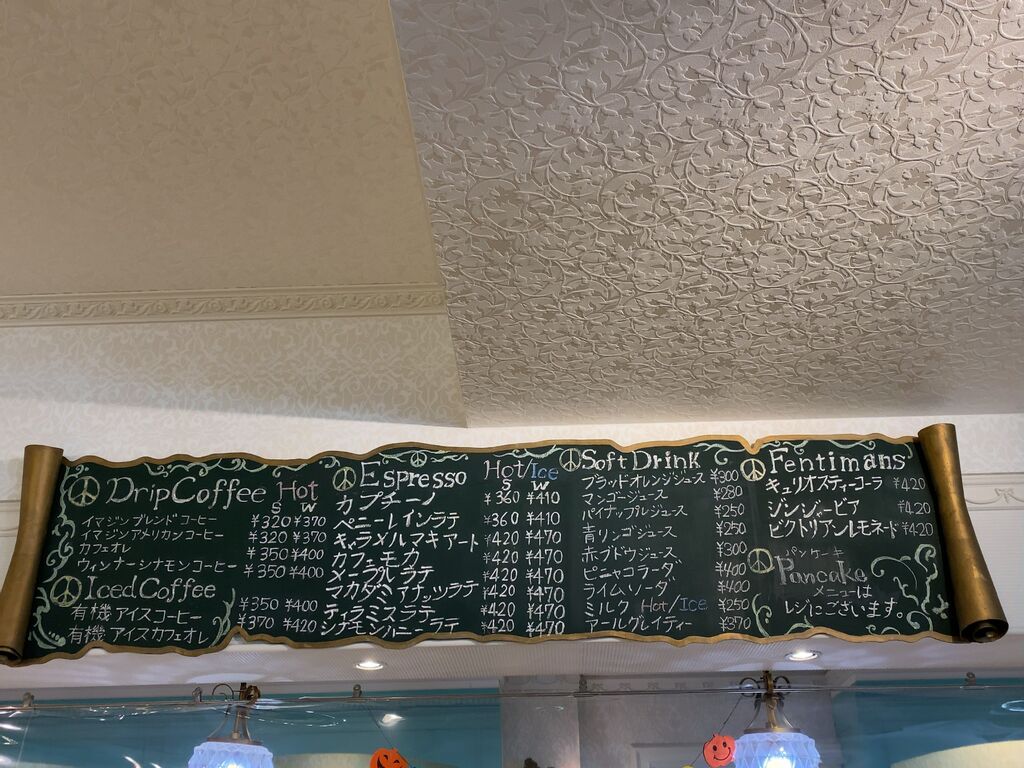 Drip Coffee Hot
S W
イマジンブレンドコーヒー ¥320 ¥370
イマジンアメリカンコーヒー ¥320 ¥370
カフェオレ ¥350 ¥400
ウィンナーシナモンコーヒー ¥350 ¥400
Iced Coffee
有機アイスコーヒー ¥350 ¥400
有機アイスカフェオレ ¥370 ¥420
Espresso Hot/Ice
S W
カプチーノ ¥360 ¥410
ペニーレインラテ ¥360 ¥410
キャラメルマキアート ¥420 ¥470
カフェモカ ¥420 ¥470
メープルラテ ¥420 ¥470
マカダミアナッツラテ ¥420 ¥470
ティラミスラテ ¥420 ¥470
シナモンハニーラテ ¥420 ¥470
Soft Drink
ブラッドオレンジジュース ¥300
マンゴージュース ¥280
パイナップルジュース ¥250
青リンゴジュース ¥250
赤ブドウジュース ¥300
ピニャコラーダ ¥400
ライムソーダ ¥400
ミルク Hot/Ice ¥250
アールグレイティー ¥370
Fentimans
キュリオスティーコーラ ¥420
ジンジャービア ¥420
ビクトリアンレモネード ¥420
パンケーキ
Pancake
メニューは
レジにございます。